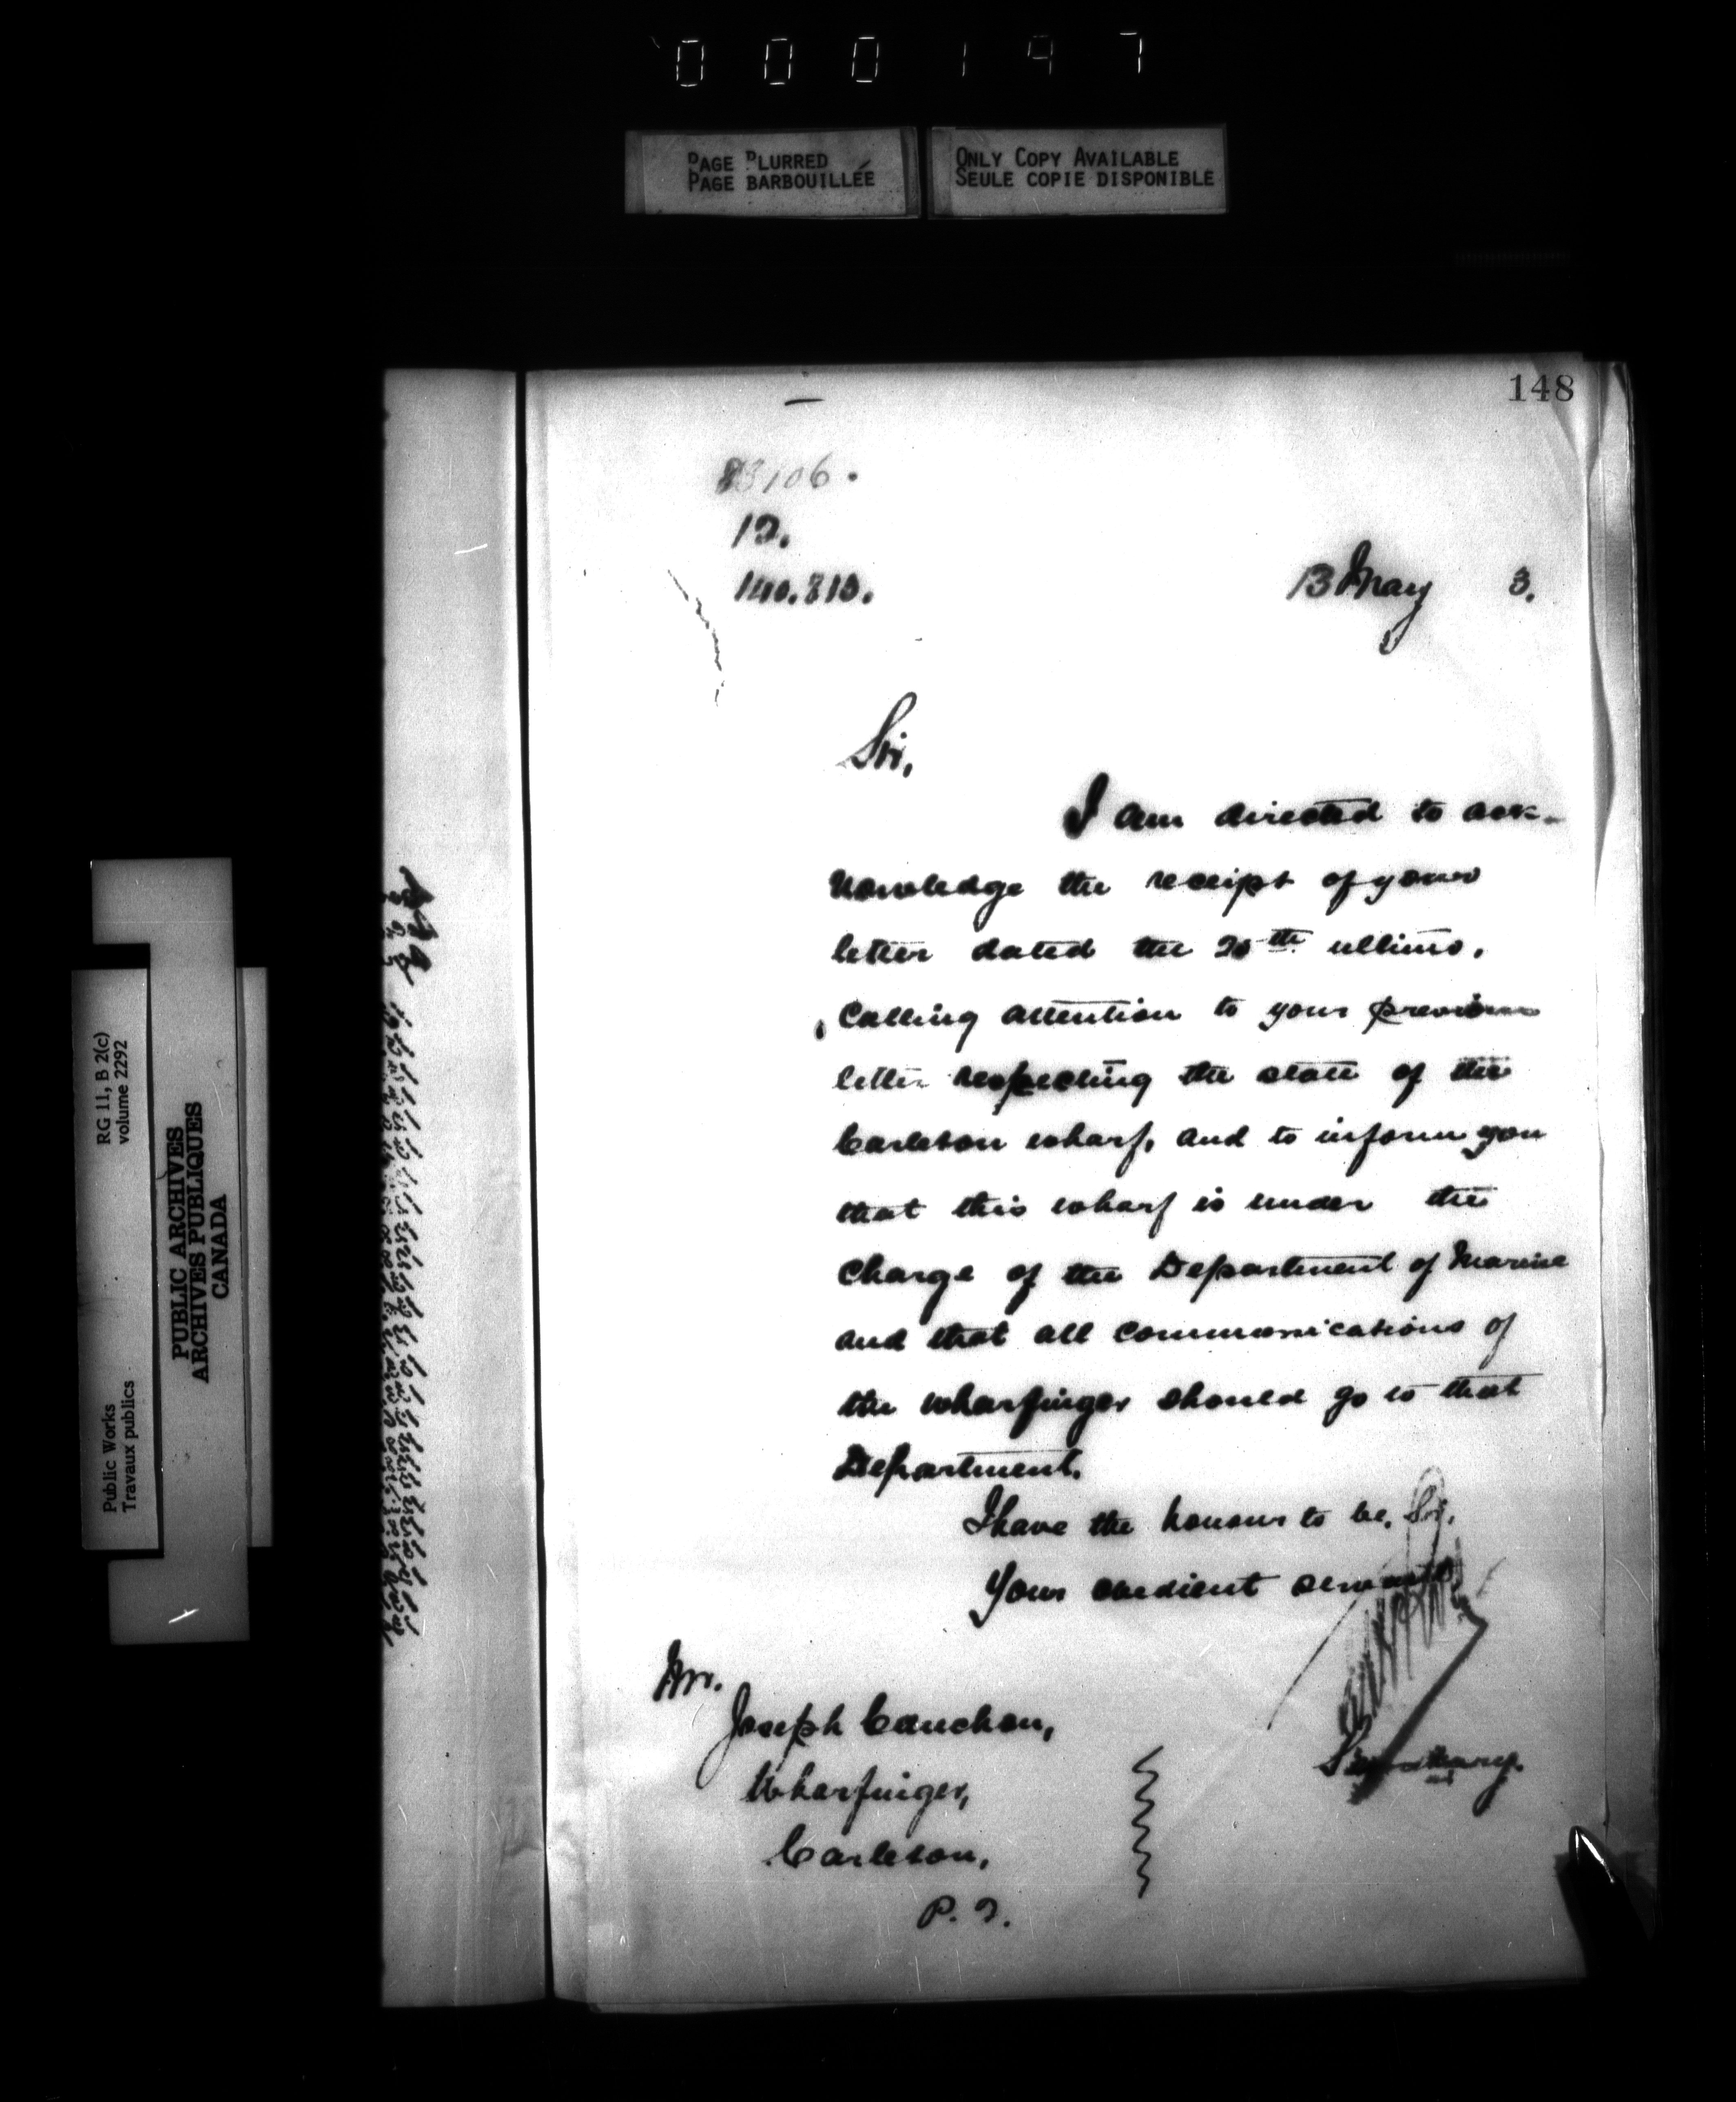 000197
PAGE BLURRED
PAGE BARBOUILLÉE
ONLY COPY AVAILABLE
SEULE COPIE DISPONIBLE
148
83106.
13 May 3.
Sir,
I am directed to ack-
nowledge the receipt of your
letter dated the 20th ultimo,
Calling attention to your previous
letter respecting the state of the
Carleton wharf, and to inform you
that this wharf is under the
Charge of the Department of Marine
and that all communications of
the wharfinger should go to that
Department.
I have the honour to be, Sir,
Your obedient servant
Secretary.
Mr.
Joseph Cauchon,
Wharfinger,
Carleton,
P. Q.
RG 11, B 2(c)
volume 2292
Public Works
Travaux publics
PUBLIC ARCHIVES
ARCHIVES PUBLIQUES
CANADA